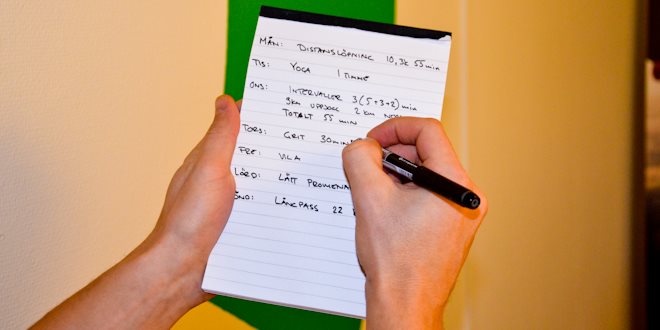 MÅN: DISTANSLÖPNING 10,3K 55min
TIS: YOGA 1 TIMME
ONS: INTERVALLER 3(5+3+2)min
3km UPPJOGG 2 km
TOTALT 55 min
TORS: GRIT 30min
FRE: VILA
LÖRD: LÄTT
LÅNGPASS 22